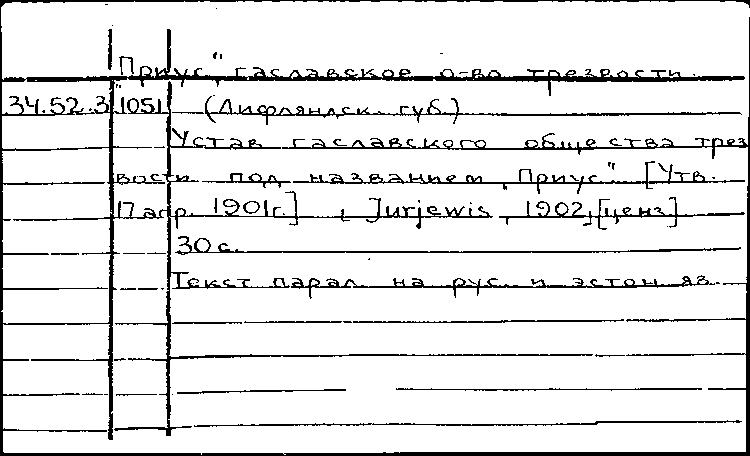 "Приус", гаславское о-во трезвости
34.52.3 1051 (Лифляндск. губ.)
Устав гаславского общества трез
вости под названием "Приус" [Утв.
17 апр. 1901г.] , Jurjewis, 1902, [ценз]
30 с.
Текст парал. на рус. и эстон. яз.